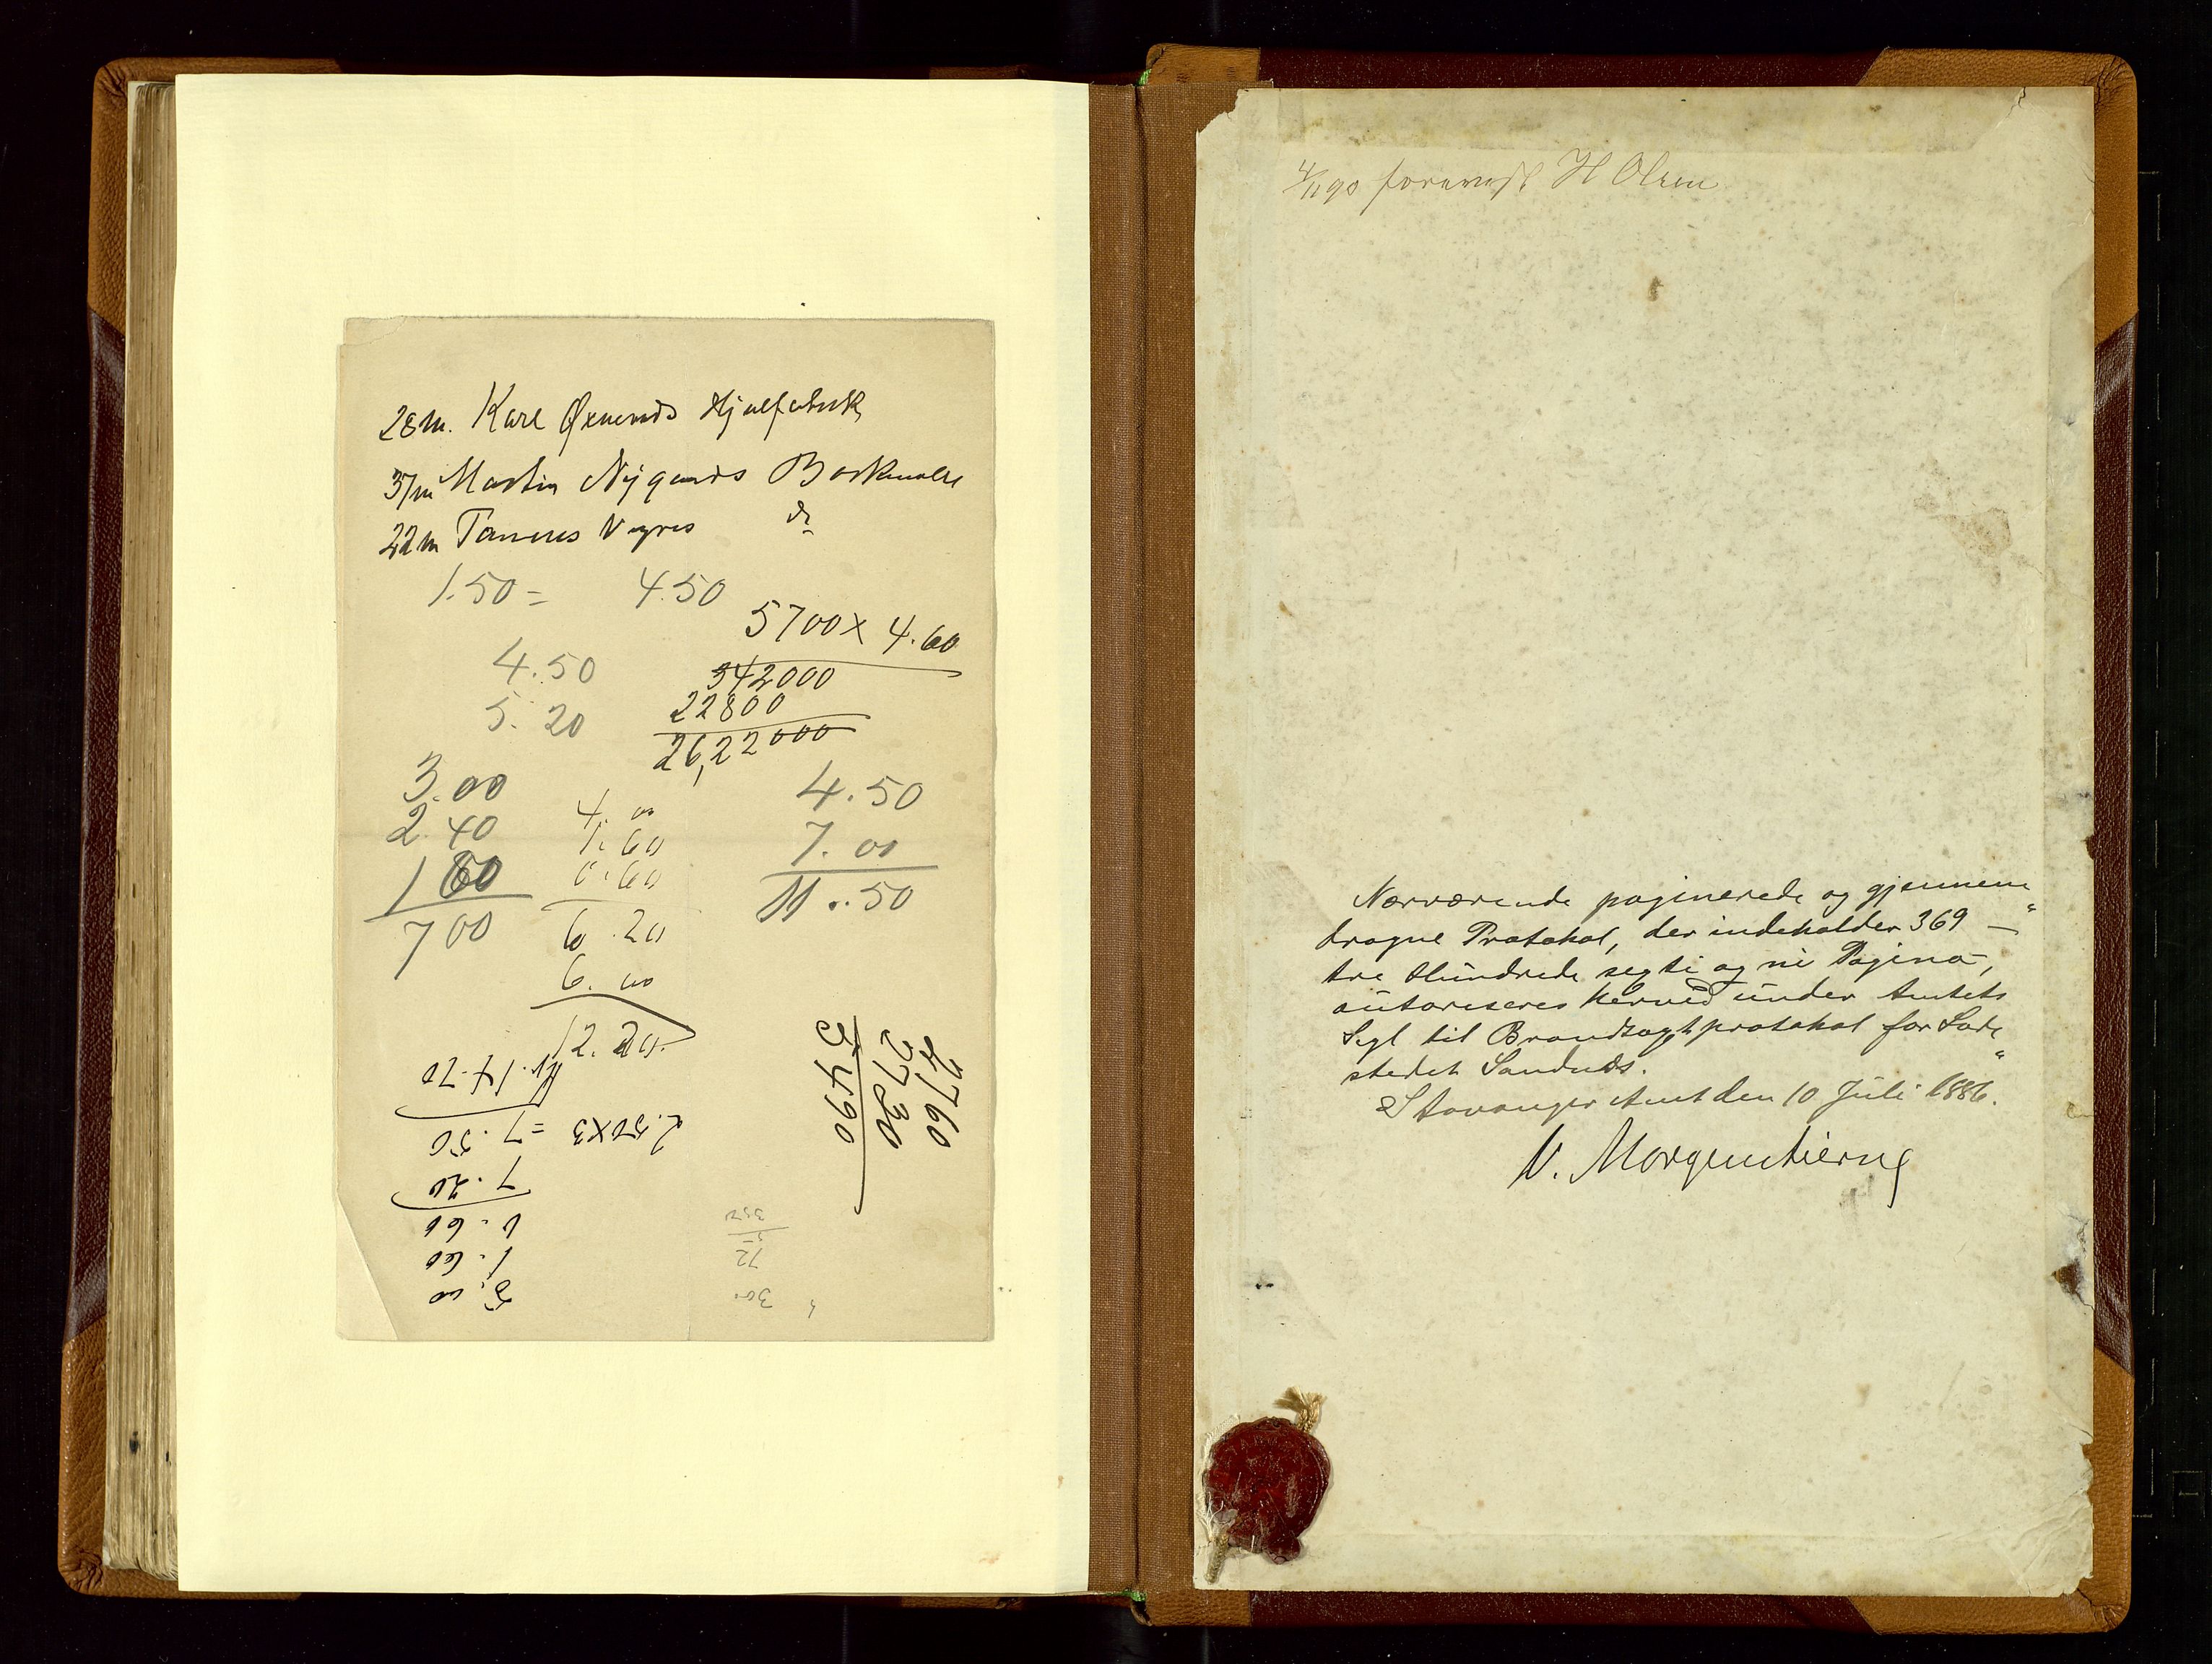 28m. Karl Øxnevads Hjulfabrik
37m Martin Nygaards Barkmølle
22m Tanner Vagnes do
1.50 = 4.50
5700 x 4.60
342000
22800
26,22000
4.50
5.20
3.00
2.40
1 60
7 00
4. 00
1. 60
0. 60
6. 20
6. 00
12. 20.
4.50
7. 00
11..50
2760
2730
5490
5. 00
1. 60
0. 60
7. 20
2.50x3 = 7.50
Kr. 14.70
300
72
4/11 90 forevist H Olsen
Nærværende paginerede og gjennem
dragne Protokol, der indeholder 369 —
tre Hundrede segti og ni Pagina,
autoriseres herved under Amtets
Segl til Brandtagstprotokol for Lade
stedet Sandnæs.
Stavanger Amt den 10 Juli 1886.
V. Morgenstierne